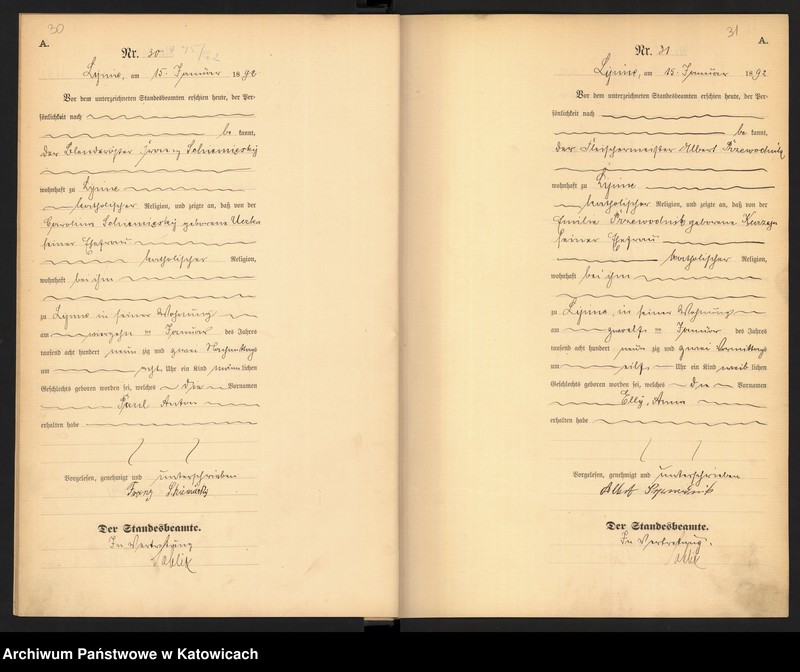 30
A.
Nr. 30
am 15. Januar 1892
Vor dem unterzeichneten Standesbeamten erschien heute, der Per-
sönlichkeit nach
be kannt,
der Franz
wohnhaft zu
katholischer Religion, und zeigte an, daß von der
geborene
seiner Ehefrau
katholischer Religion,
wohnhaft bei ihm
zu in seiner Wohnung
am vierzehn ten Januar des Jahres
tausend acht hundert neun zig und zwei Nachmittags
um acht Uhr ein Kind männ lichen
Geschlechts geboren worden sei, welches die Vornamen
Paul Anton
erhalten habe
Vorgelesen, genehmigt und unterschrieben
Franz
Der Standesbeamte.
In Vertretung
31
A.
Nr. 31
am 15. Januar 1892
Vor dem unterzeichneten Standesbeamten erschien heute, der Per-
sönlichkeit nach
be kannt,
der Fleischermeister Albert Przewodnik
wohnhaft zu
katholischer Religion, und zeigte an, daß von der
Emilie Przewodnik geborene
seiner Ehefrau
katholischer Religion,
wohnhaft bei ihm
zu in seiner Wohnung
am zwölf ten Januar des Jahres
tausend acht hundert neun zig und zwei Vormittags
um elf Uhr ein Kind weib lichen
Geschlechts geboren worden sei, welches die Vornamen
Elly, Anna
erhalten habe
Vorgelesen, genehmigt und unterschrieben
Albert
Der Standesbeamte.
In Vertretung.
Archiwum Państwowe w Katowicach